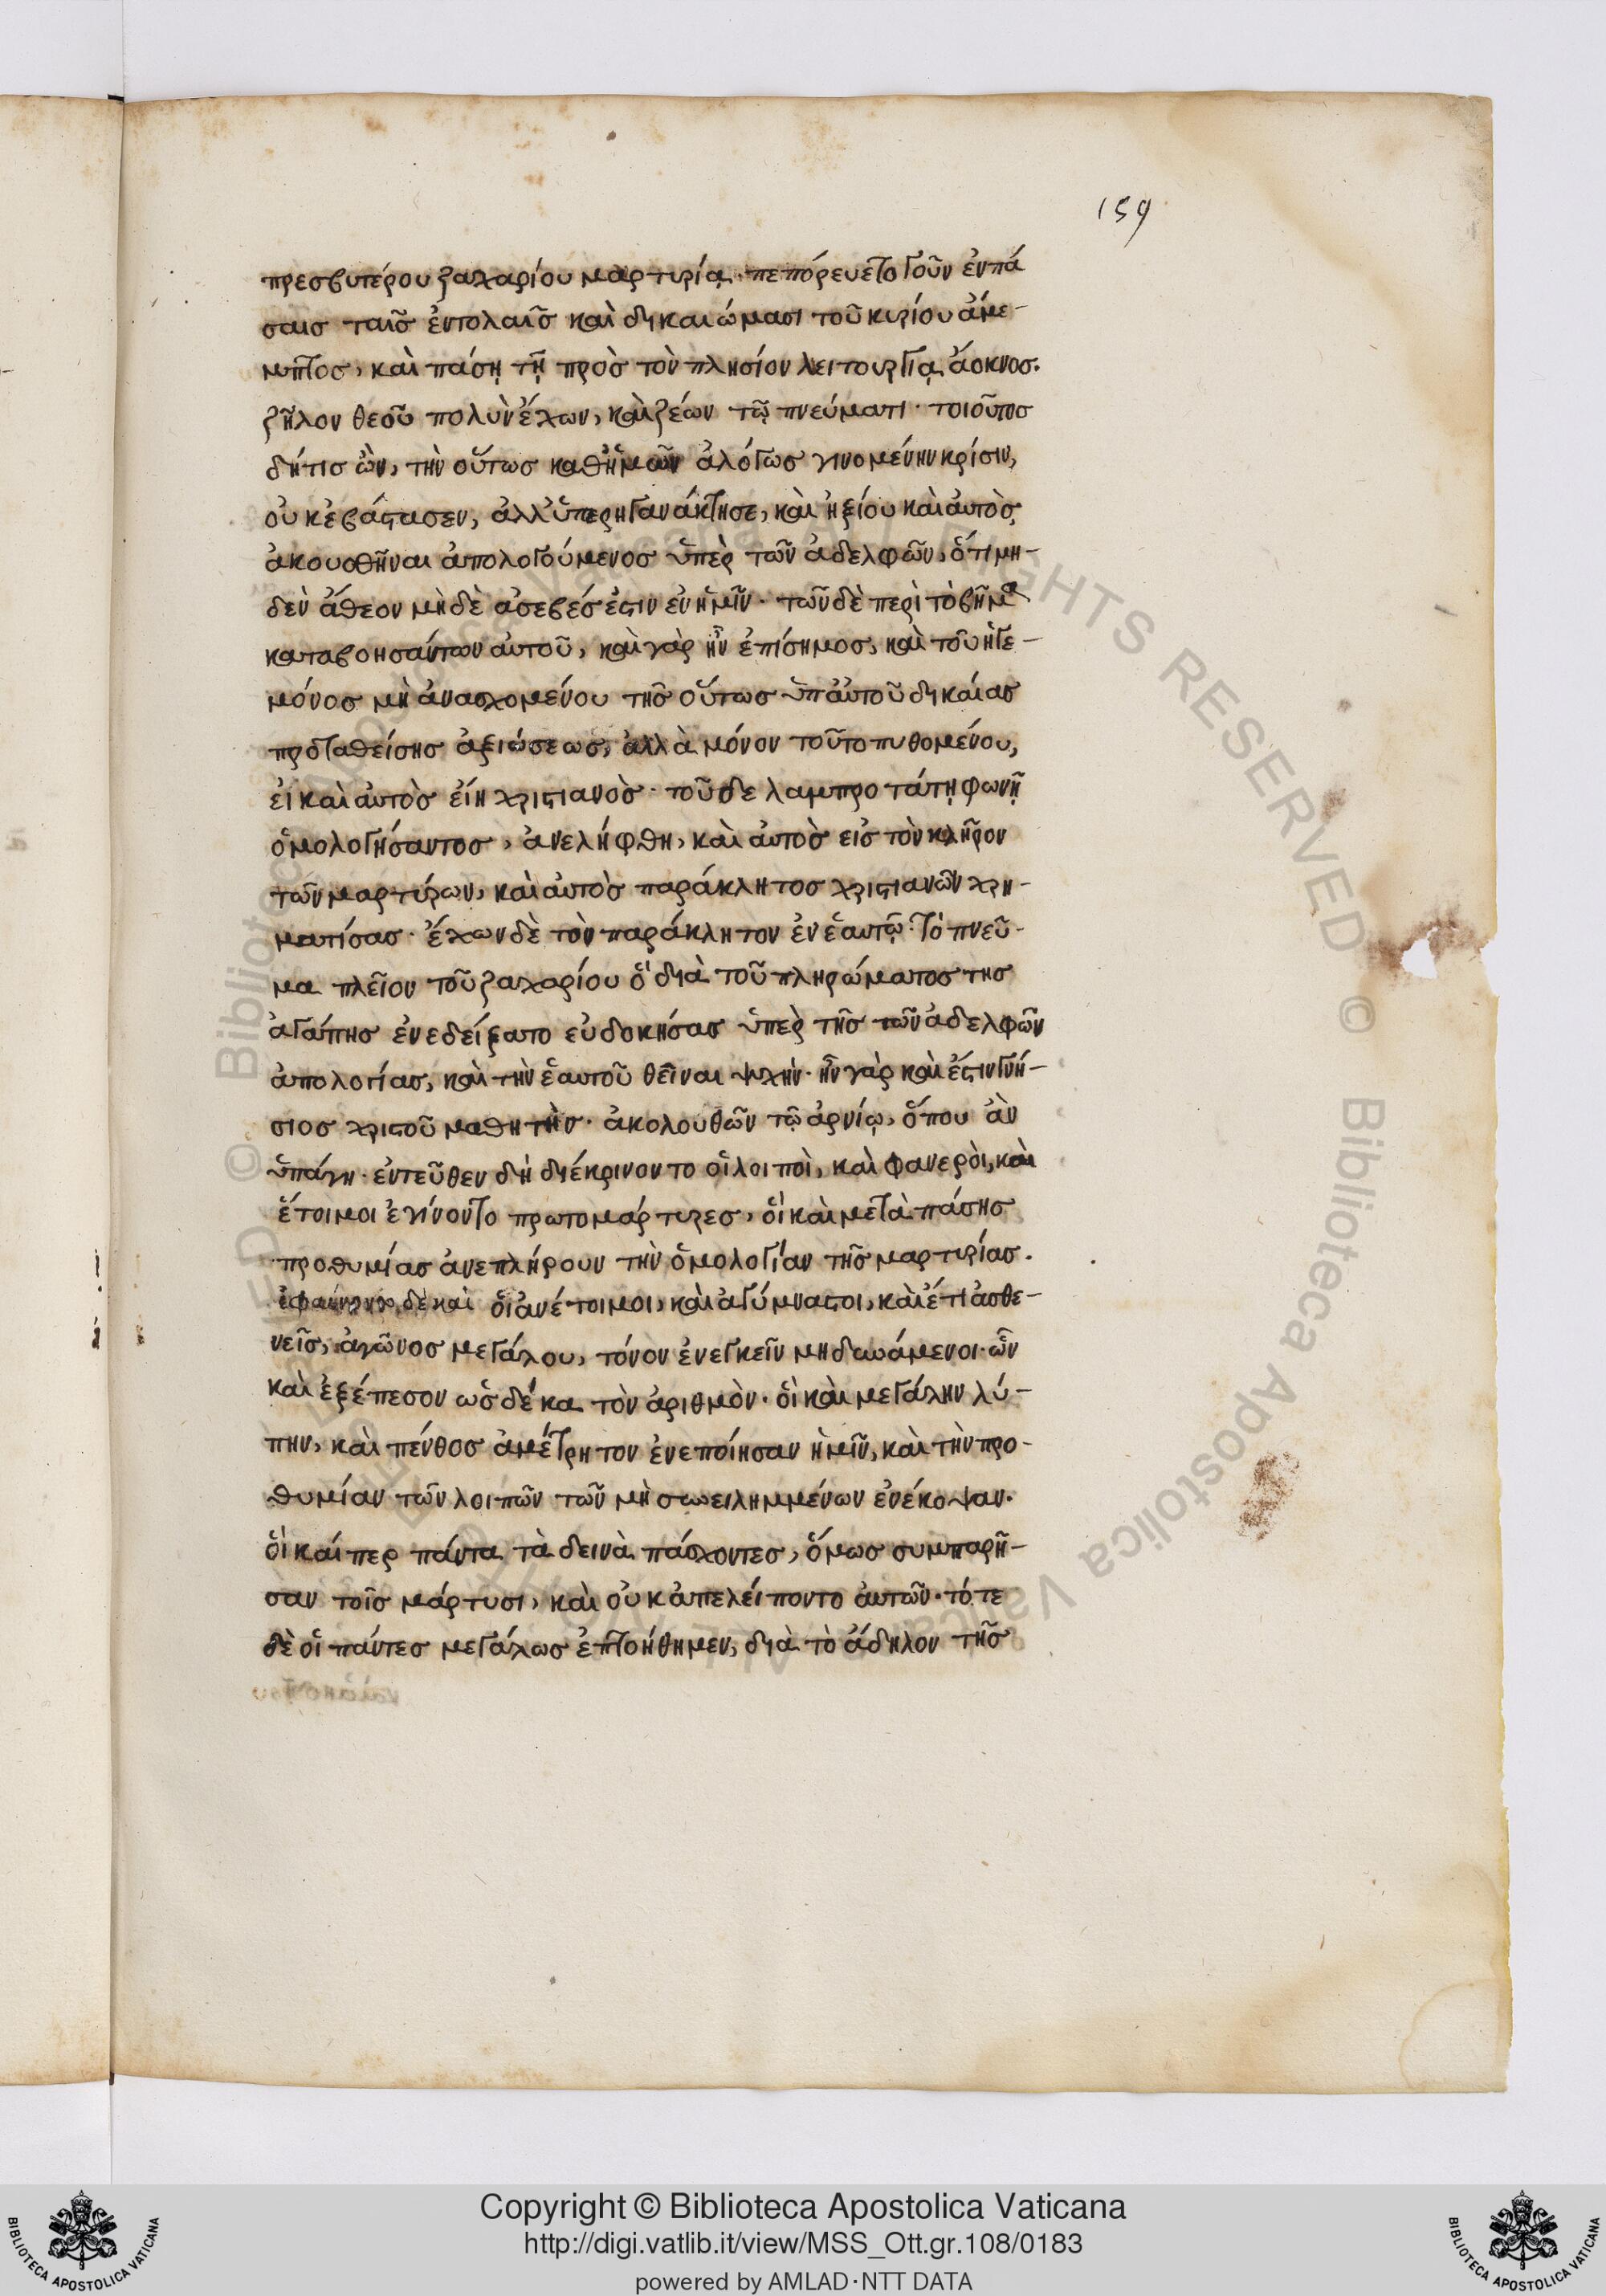 159
πρεσβυτέρου ζαχαρίου μαρτυρίᾳ. πεπόρευετο γοῦν ἐν πά
σαις ταῖς ἐντολαῖς καὶ δικαιώμασι τοῦ κυρίου ἄμε-
μπτος, καὶ πάσῃ τῇ πρὸς τὸν πλησίον λειτουργίᾳ ἄοκνος.
ζῆλον θεοῦ πολὺν ἔχων, καὶ ζέων τῷ πνεύματι· τοιοῦτος
δή τις ὢν, τὴν οὕτως καθ' ἡμῶν ἀλόγως γινομένην κρίσιν,
οὐκ ἐβάστασεν, ἀλλ' ὑπερηγανάκτησε, καὶ ἠξίου καὶ αὐτὸς
ἀκουσθῆναι ἀπολογούμενος ὑπὲρ τῶν ἀδελφῶν, ὅτι μη-
δεν ἄθεον μὴ δὲ ἀσεβές ἐστιν ἐν ἡμῖν· τῶν δὲ περὶ τὸ βῆμα
καταβοησάντων αὐτοῦ, καὶ γὰρ ἦν ἐπίσημος, καὶ τοῦ ἡγε-
μόνος μὴ ἀνασχομένου τῆς οὕτως ὑπ' αὐτοῦ δικαίας
προταθείσης ἀξιώσεως, ἀλλὰ μόνον τοῦτο πυθομένου,
εἰ καὶ αὐτὸς εἴη χριστιανὸς· τοῦ δε λαμπροτάτῃ φωνῇ
ὁμολογήσαντος, ἀνελήφθη, καὶ αὐτὸς εἰς τὸν κλῆρον
τῶν μαρτύρων, καὶ αὐτὸς παράκλητος χριστιανῶν χρη-
ματίσας· ἔχων δὲ τὸν παράκλητον ἐν ἑαυτῷ· τὸ πνεῦ-
μα πλεῖον τοῦ ζαχαρίου ὃ διὰ τοῦ πληρώματος της
ἀγάπης ἐνεδείξατο εὐδοκήσας ὑπὲρ τῆς τῶν ἀδελφῶν
ἀπολογίας, καὶ τὴν ἑαυτοῦ θεῖναι ψυχήν· ἦν γὰρ καὶ ἔστιν γνή-
σιος χριστοῦ μαθητὴς· ἀκολουθῶν τῷ ἀρνίῳ, ὅπου ἂν
ὑπάγη· ἐντεῦθεν δὴ διέκρινοντο οἱ λοιποὶ, καὶ φανεροὶ, καὶ
ἕτοιμοι ἐγίνοντο πρωτομάρτυρες, οἳ καὶ μετὰ πάσης
προθυμίας ἀνεπλήρουν τὴν ὁμολογίαν τῆς μαρτυρίας.
ἐφαίνοντο δὲ καὶ οἱ ἀνέτοιμοι, καὶ ἀγύμναστοι, καὶ ἔτι ἀσθε-
νεῖς, ἀγῶνος μεγάλου, τόνον ἐνεγκεῖν μὴ δυνάμενοι. ὧν
καὶ ἐξέπεσον ὡς δέκα τὸν ἀριθμὸν· οἳ καὶ μεγάλην λύ-
πην, καὶ πένθος ἀμέτρητον ἐνεποίησαν ἡμῖν, καὶ τὴν προ-
θυμίαν τῶν λοιπῶν τῶν μὴ συνειλημμένων ἐνέκοψαν.
οἳ καίπερ πάντα τὰ δεινὰ πάσχοντες, ὅμως συμπαρῆ-
σαν τοῖς μάρτυσι, καὶ οὐκ ἀπελείποντο αὐτῶν. τότε
δὲ οἱ πάντες μεγάλως ἐπτοήθημεν, διὰ τὸ ἄδηλον τῆς
Copyright © Biblioteca Apostolica Vaticana
http://digi.vatlib.it/view/MSS_Ott.gr.108/0183
powered by AMLAD·NTT DATA